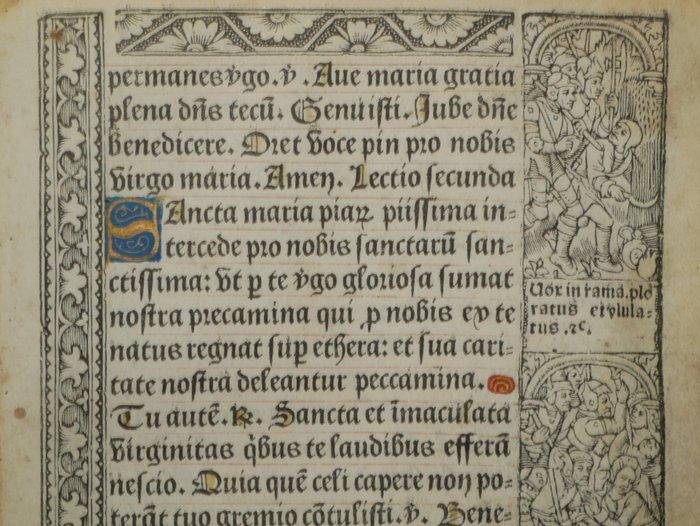 permanes v̄go. ℣. Aue maria gratia
plena dn̄s tecū. Genuisti. Jube dn̄e
benedicere. Oret voce pia pro nobis
virgo maria. Amen. Lectio secunda
SAncta maria piaꝝ piissima in-
tercede pro nobis sanctarū san-
ctissima: vt ꝑ te v̄go gloriosa sumat
nostra precamina qui ꝓ nobis ex te
natus regnat suꝑ ethera: et sua cari-
tate nostra deleantur peccamina.
Tu autē. ℟. Sancta et īmaculata
virginitas q̇bus te laudibus efferā
nescio. Quia quē celi capere non po-
terāt tuo gremio cōtulisti. ℣. Bene-
Uox in rama. plo
ratus et vlula-
tus. ⁊c.